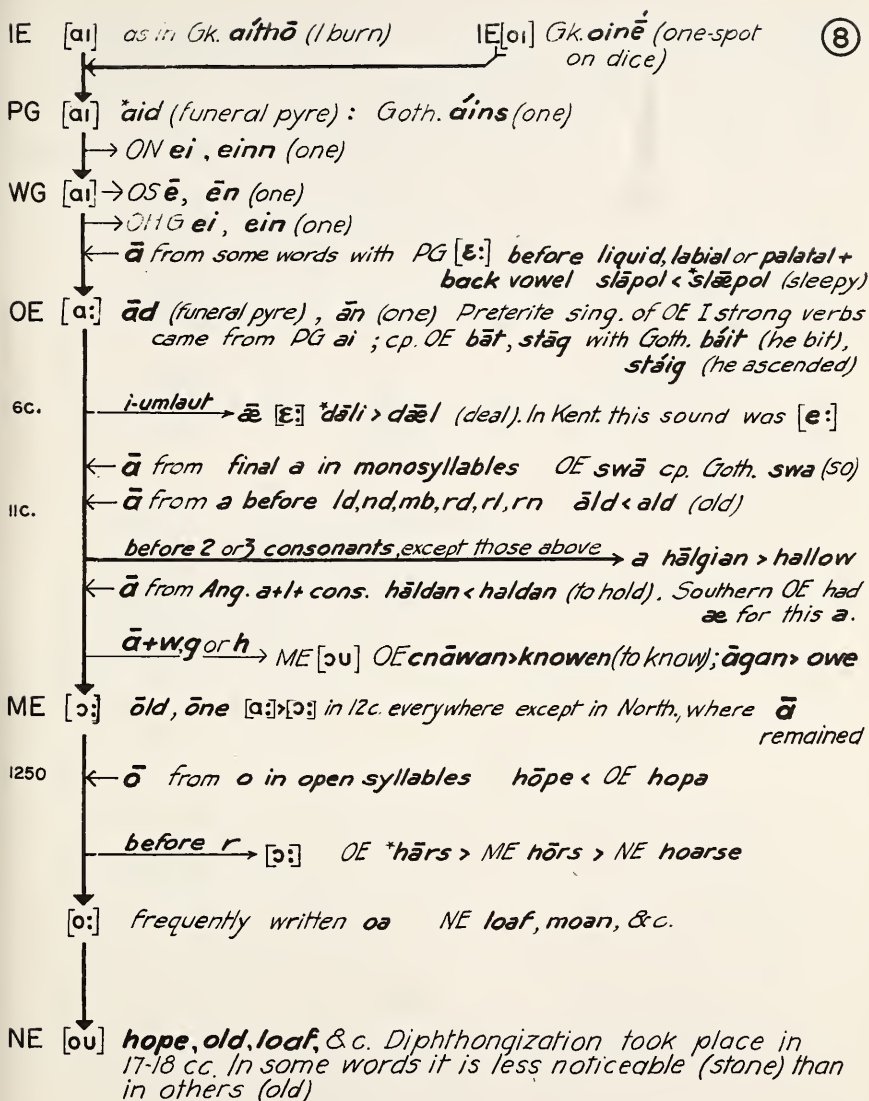 IE [aɪ] as in Gk. aíthō (I burn) IE[oɪ] Gk. oinḗ (one-spot ⑧
on dice)
PG [aɪ] *aid (funeral pyre) : Goth. áins (one)
→ ON ei, einn (one)
WG [aɪ] → OS ē, ēn (one)
→ OHG ei, ein (one)
← ā from some words with PG [ɛ:] before liquid, labial or palatal +
back vowel slāpol < *slǣpol (sleepy)
OE [a:] ād (funeral pyre), ān (one) Preterite sing. of OE I strong verbs
came from PG ai ; cp. OE bāt, stāg with Goth. báit (he bit),
stáig (he ascended)
6c. i-umlaut → ǣ [ɛ:] *dāli > dǣl (deal). In Kent. this sound was [e:]
← ā from final a in monosyllables OE swā cp. Goth. swa (so)
← ā from a before ld, nd, mb, rd, rl, rn āld < ald (old)
11c.
before 2 or 3 consonants, except those above → a hālgian > hallow
← ā from Ang. a+l+ cons. hāldan < haldan (to hold). Southern OE had
æ for this a.
ā+w, g or h → ME [ɔu] OE cnāwan > knowen (to know); āgan > owe
ME [ɔ:] ōld, ōne [a:]>[ɔ:] in 12c. everywhere except in North., where ā
remained
1250 ← ō from o in open syllables hōpe < OE hopa
before r → [ɔ:] OE *hārs > ME hōrs > NE hoarse
[o:] frequently written oa NE loaf, moan, &c.
NE [ou] hope, old, loaf, &c. Diphthongization took place in
17-18 cc. In some words it is less noticeable (stone) than
in others (old)